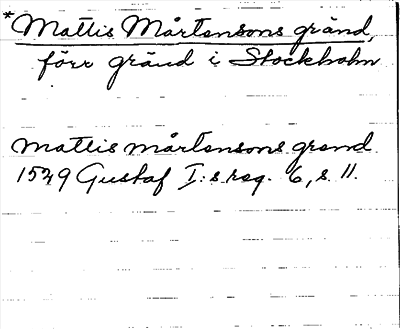 *Mattis Mårtensons gränd,
förr gränd i Stockholm
mattis mårtensons grend
1529 Gustaf I:s reg. 6, s. 11.